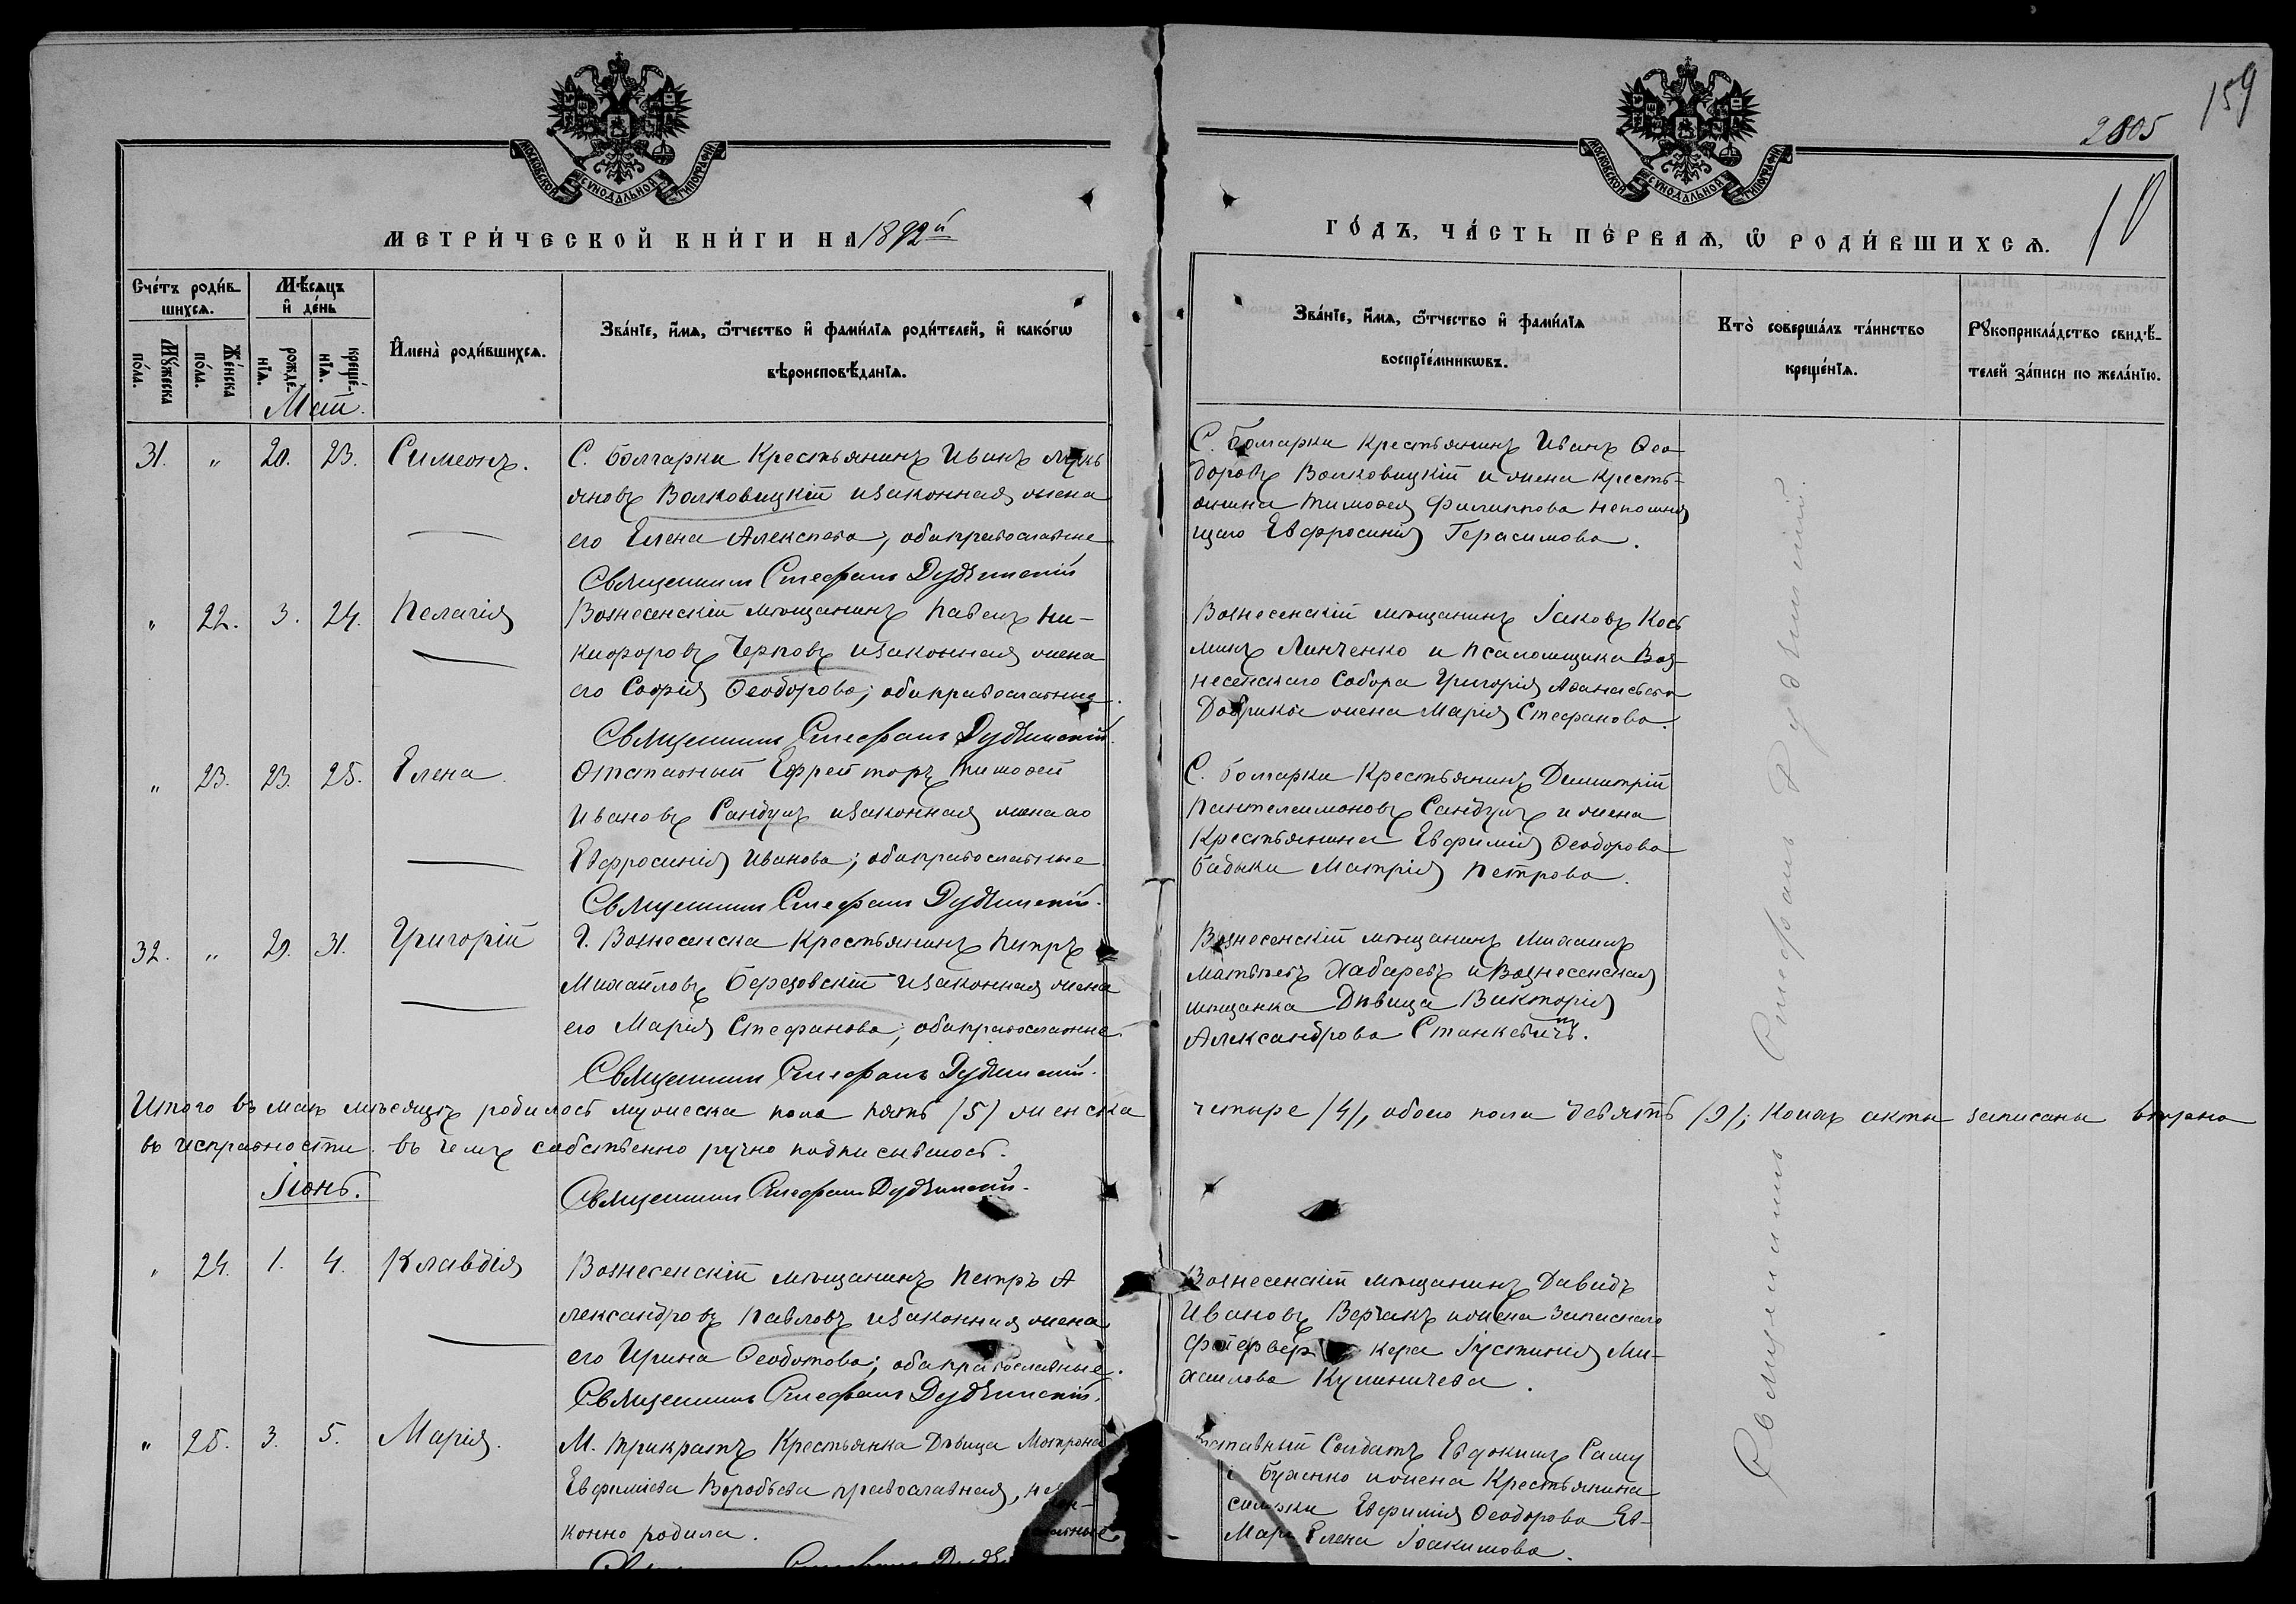 159
2805
10
МОСКОВСКОЙ СѴНОДАЛЬНОЙ ТИПОГРАФІИ
МОСКОВСКОЙ СѴНОДАЛЬНОЙ ТИПОГРАФІИ
МЕТРИ́ЧЕСКОЙ КНИ́ГИ НА 1892й
ГО́ДЪ, ЧА́СТЬ ПЕ́РВАѦ, Ѡ҆ РОДИ́ВШИХСѦ.
Сче́тъ роди́в-
шихсѧ.
Мѣ́сѧцъ
и҆ де́нь
Мꙋ́жеска
по́ла.
Же́нска
по́ла.
рожде́-
нїѧ.
креще́-
нїѧ.
И҆мена̀ роди́вшихсѧ.
Зва́нїе, и҆́мѧ, ѻ҆́тчество и҆ фами́лїѧ роди́телей, и҆ како́гѡ
вѣроисповѣ́данїѧ.
Зва́нїе, и҆́мѧ, ѻ҆́тчество и҆ фами́лїѧ
воспрїе́мникѡвъ.
Кто̀ соверша́лъ та́инство
креще́нїѧ.
Рꙋкоприкла́дство свидѣ́-
телей за́писи по жела́нїю.
Май.
31. " 20. 23. Симеонъ.
С. Болгарки Крестьянинъ Иванъ Лукь
яновъ Волковицкій и законная жена
его Елена Алексѣева; оба православные
Священникъ Стефанъ Дудзинскій
С. Болгарки Крестьянинъ Иванъ Ѳео-
доровъ Волковицкій и жена Кресть-
янина Тимоѳея Филиппова Непомня
щаго Евфросинія Герасимова.
" 22. 3. 24. Пелагія
Вознесенскій мѣщанинъ Павелъ Ни-
кифоровъ Черновъ и законная жена
его Софія Ѳеодорова; оба православные.
Священникъ Стефанъ Дудзинскій.
Вознесенскій мѣщанинъ Іаковъ Кось
минъ Линченко и Псаломщика Воз-
несенскаго Собора Григорія Аѳанасьева
жена Марія Стефанова.
" 23. 23. 25. Елена
Отставный Ефрейторъ Тимоѳей
Ивановъ Сандулъ и законная жена его
Евфросинія Иванова; оба православные.
Священникъ Стефанъ Дудзинскій.
С. Болгарки Крестьянинъ Димитрій
Пантелеимоновъ Сандулъ и жена
Крестьянина Евфимія Ѳеодорова
Бабыки Матрія Петрова.
32. " 29. 31. Григорій
Г. Вознесенска Крестьянинъ Петръ
Михайловъ Березовскій и законная жена
его Марія Стефанова; оба православные.
Священникъ Стефанъ Дудзинскій.
Вознесенскій мѣщанинъ Михаилъ
Матвѣевъ Хабаревъ и Вознесенская
мѣщанка Дѣвица Викторія
Александрова Станкевичъ.
Итого въ маѣ мѣсяцѣ родилось мужеска пола пять /5/ женска четыре /4/, обоего пола девять /9/; коихъ акты записаны вѣрно
въ исправности. въ чемъ собственно ручно подписываюсь.
Іюнь.
Священникъ Стефанъ Дудзинскій.
" 24. 1. 4. Клавдія
Вознесенскій мѣщанинъ Петръ А
лександровъ Павловъ и законная жена
его Ирина Ѳеодотова; оба православные.
Священникъ Стефанъ Дудзинскій.
Вознесенскій мѣщанинъ Давидъ
Ивановъ Верчакъ и жена Запаснаго
Фейерверкера Іустинія Ми-
хаилова
" 25. 3. 5. Марія.
М. Трикратъ Крестьянка Дѣвица Матрона
Евфиміева Воробьева православная,
конно родила.
Солдатъ Евдокимъ
и жена Крестьянина
Евфимія Ѳеодорова
Елена Іоакимова.
Священникъ Стефанъ Дудзинскій.